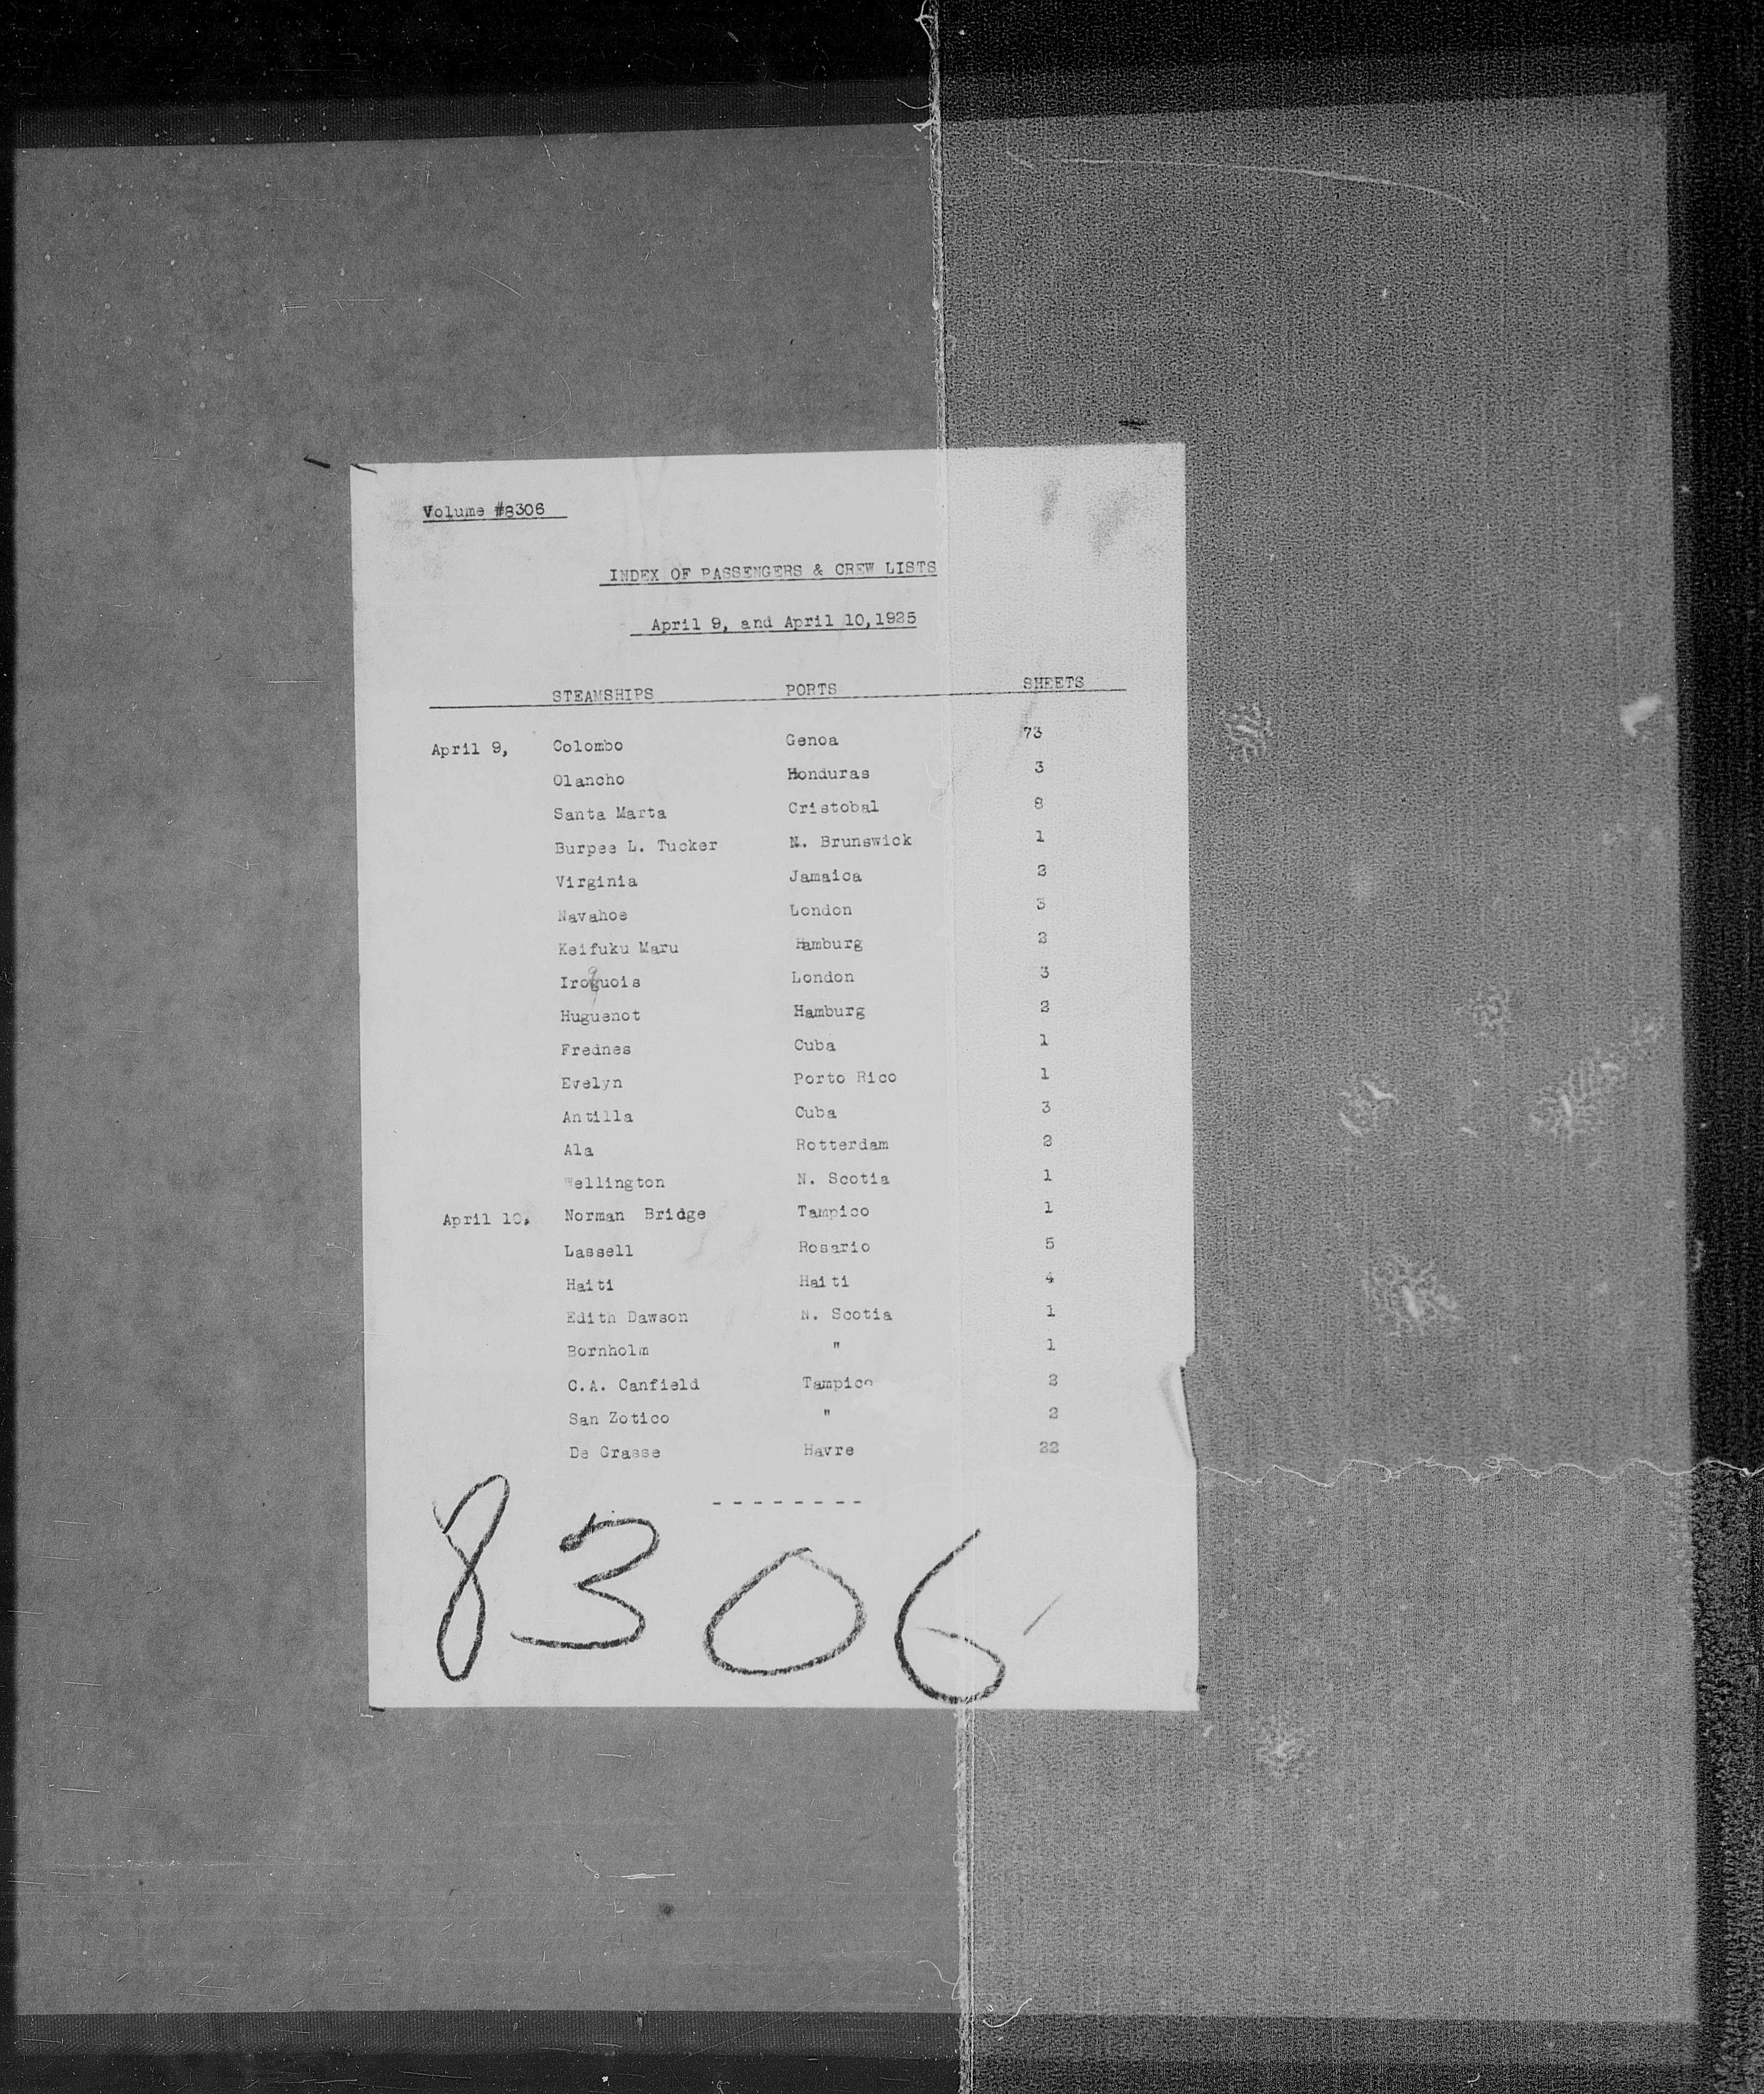 Volume #8306
INDEX OF PASSENGERS & CREW LISTS
April 9, and April 10,1925
STEAMSHIPS PORTS SHEETS
April 9, Colombo Genoa 73
Olancho Honduras 3
Santa Marta Cristobal 8
Burpee L. Tucker N. Brunswick 1
Virginia Jamaica 2
Navahoe London 3
Keifuku Maru Hamburg 2
Iroquois London 3
Huguenot Hamburg 2
Frednes Cuba 1
Evelyn Porto Rico 1
Antilla Cuba 3
Ala Rotterdam 2
Wellington N. Scotia 1
April 10, Norman Bridge Tampico 1
Lassell Rosario 5
Haiti Haiti 4
Edith Dawson N. Scotia 1
Bornholm " 1
C.A. Canfield Tampico 2
San Zotico " 2
De Grasse Havre 22
- - - - - - - -
8306